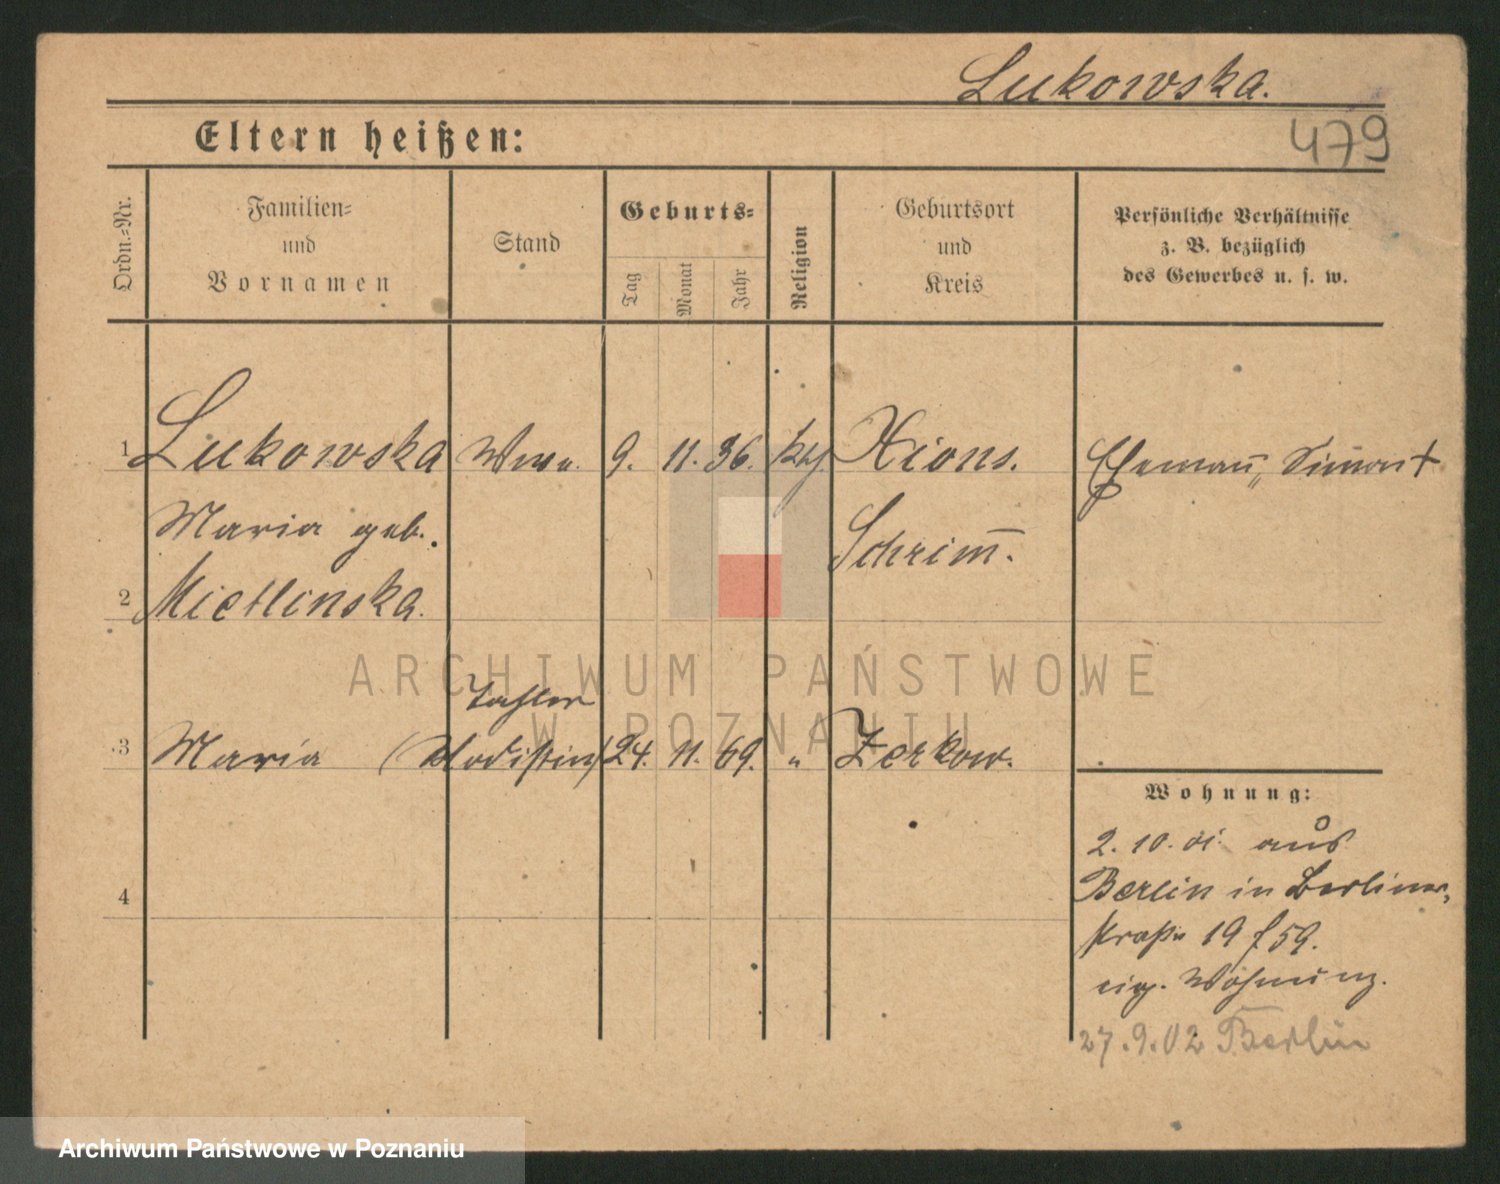 Lukowska.
479
Eltern heißen:
Ordn.-Nr.
Familien-
und
Vornamen
Stand
Geburts-
Tag
Monat
Jahr
Religion
Geburtsort
und
Kreis
Persönliche Verhältnisse
z. B. bezüglich
des Gewerbes u. s. w.
1 Lukowska Wwe. 9. 11. 36. kth Xions. Ehemann Simon †
Maria geb. Schrim̄.
2 Mietlinska.
Tochter
3 Maria (Modistin) 24. 11. 69. " Zerkow.
Wohnung:
2. 10. 01. aus
Berlin in Berliner-
straße 19 f 59.
eig. Wohnung.
27.9.02 Berlin
4
ARCHIWUM PAŃSTWOWE
W POZNANIU
Archiwum Państwowe w Poznaniu